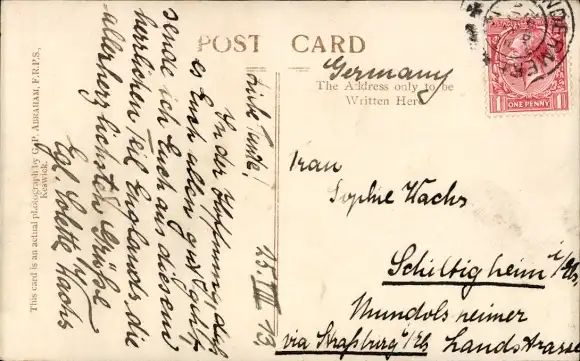 POST CARD
Germany
The Address only to be
Written Here
ONE PENNY
Frau
Sophie Wachs
Schiltigheim i/Els.
Mundolsheimer
Landstrasse
via Straßburg i/Els
25. VIII 13
Liebe Tante!
In der Hoffnung, daß
es Euch allen gut geht,
sende ich Euch aus diesem
herrlichen Teil Englands die
allerherzlichsten Grüße
Wachs
This card is an actual photograph by G. P. ABRAHAM, F.R.P.S.,
Keswick.